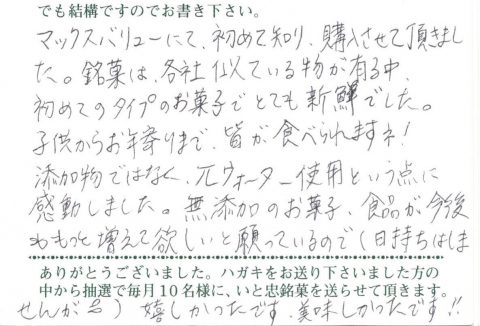 でも結構ですのでお書き下さい。
マックスバリューにて、初めて知り、購入させて頂きまし
た。銘菓は、各社似ている物が有る中、
初めてのタイプのお菓子でとても新鮮でした。
子供からお年寄りまで、皆が食べられますネ!
添加物ではなく、元ウォーター使用という点に
感動しました。無添加のお菓子、食品が今後
ももっと増えて欲しいと願っているので(日持ちはしま
ありがとうございました。ハガキをお送り下さいました方の
中から抽選で毎月10名様に、いと忠銘菓を送らせて頂きます。
せんがゑ)嬉しかったです、美味しかったです!!